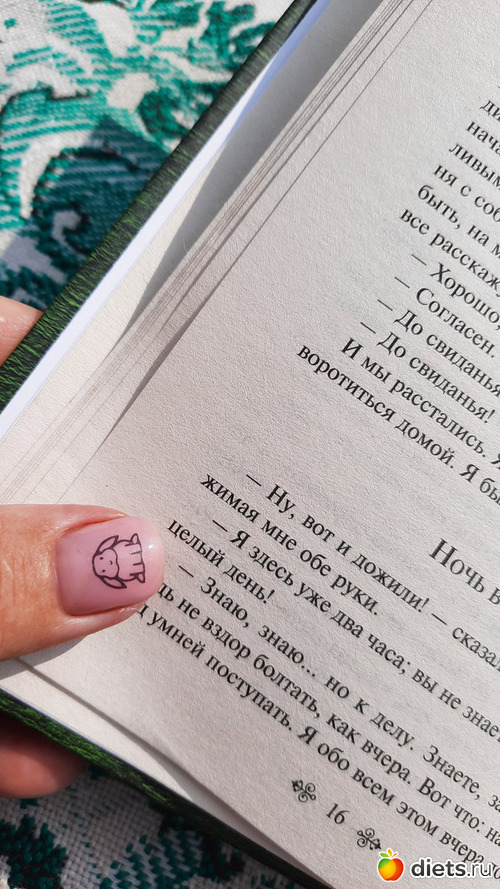 ди
нача
ливым
ня с соб
быть, на м
все расскаж
– Хорошо,
– Согласен.
– До свиданья
– До свиданья!
И мы расстались. Я
воротиться домой. Я бы
Ночь в
– Ну, вот и дожили! – сказа
жимая мне обе руки.
– Я здесь уже два часа; вы не знает
целый день!
– Знаю, знаю... но к делу. Знаете, за
не вздор болтать, как вчера. Вот что: на
умней поступать. Я обо всем этом вчера
16
diets.ru